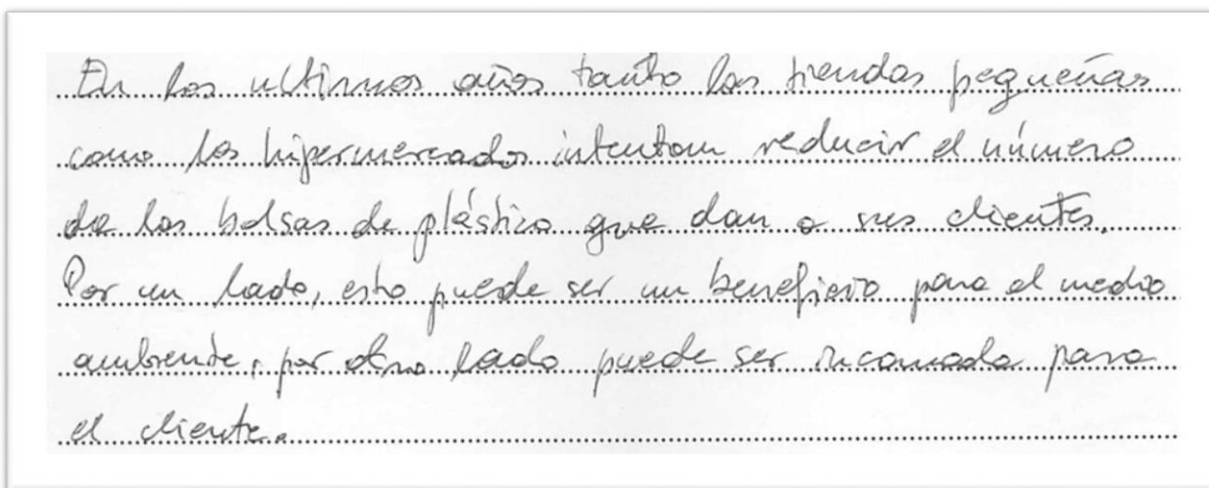 En los ultimos años tanto las tiendas pequeñas
como los hipermercados intentam reducir el número
de las bolsas de plástico que dan a sus clientes.
Por un lado, esto puede ser un beneficio para el medio
ambiente, por otro lado puede ser incomoda para
el cliente.